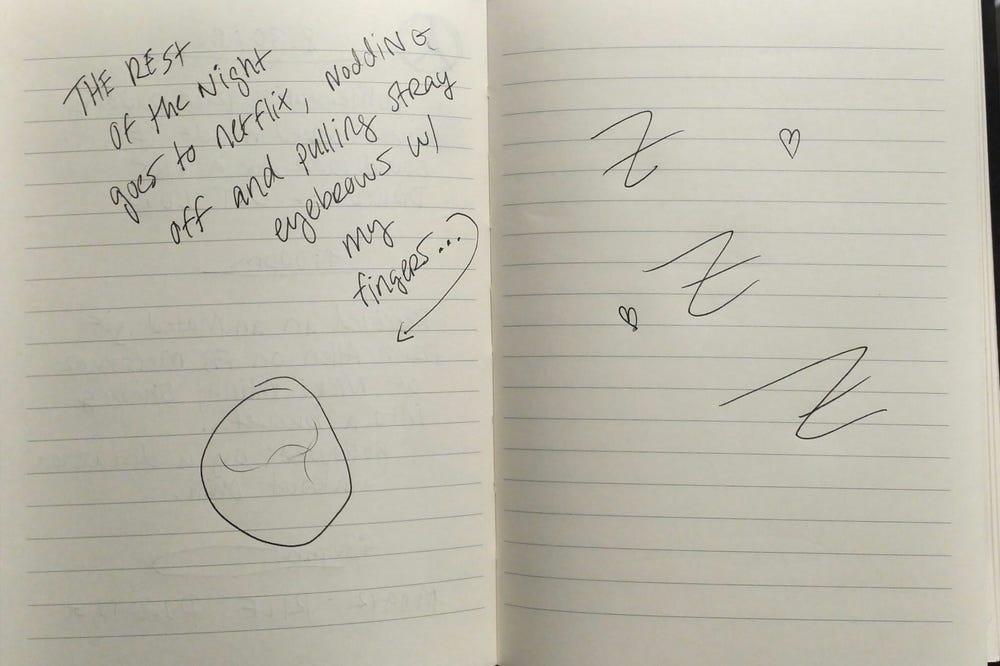 THE REST
of the Night
goes to netflix, NoddiNG
off and pulling stray
eyebrows w/
my
fingers...
Z
Z
Z